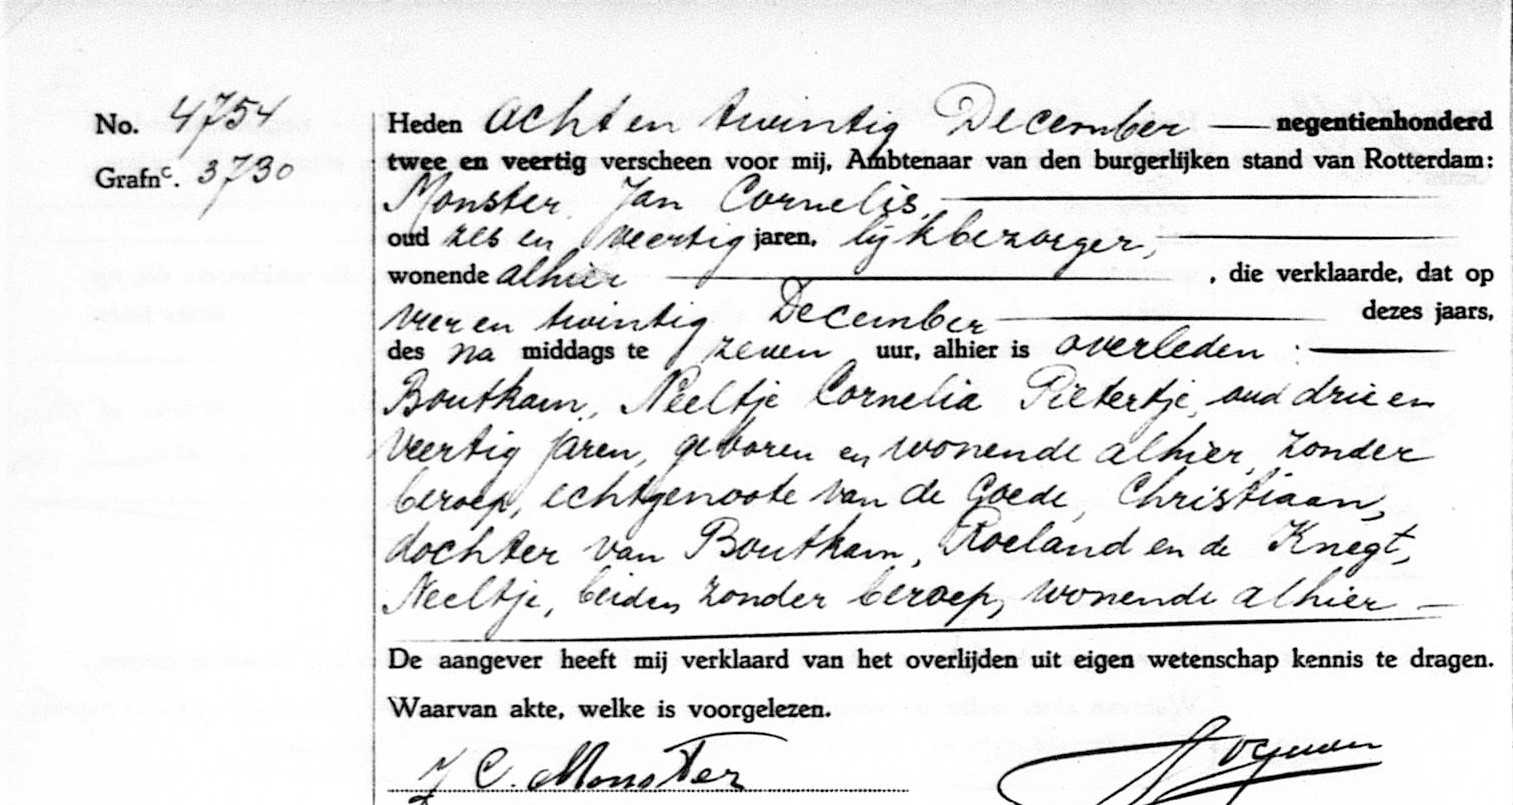 No. 4754
Grafnᶜ. 3730
Heden acht en twintig December — negentienhonderd
twee en veertig verscheen voor mij, Ambtenaar van den burgerlijken stand van Rotterdam:
Monster, Jan Cornelis, —
oud zes en veertig jaren, lijkbezorger, —
wonende alhier — , die verklaarde, dat op
vier en twintig December — dezes jaars,
des na middags te zeven uur, alhier is overleden : —
Boutkam, Neeltje Cornelia Pietertje, oud drie en
veertig jaren, geboren en wonende alhier, zonder
beroep, echtgenoote van de Goede, Christiaan,
dochter van Boutkam, Roeland en de Knegt,
Neeltje, beiden zonder beroep, wonende alhier —
De aangever heeft mij verklaard van het overlijden uit eigen wetenschap kennis te dragen.
Waarvan akte, welke is voorgelezen.
J C. Monster